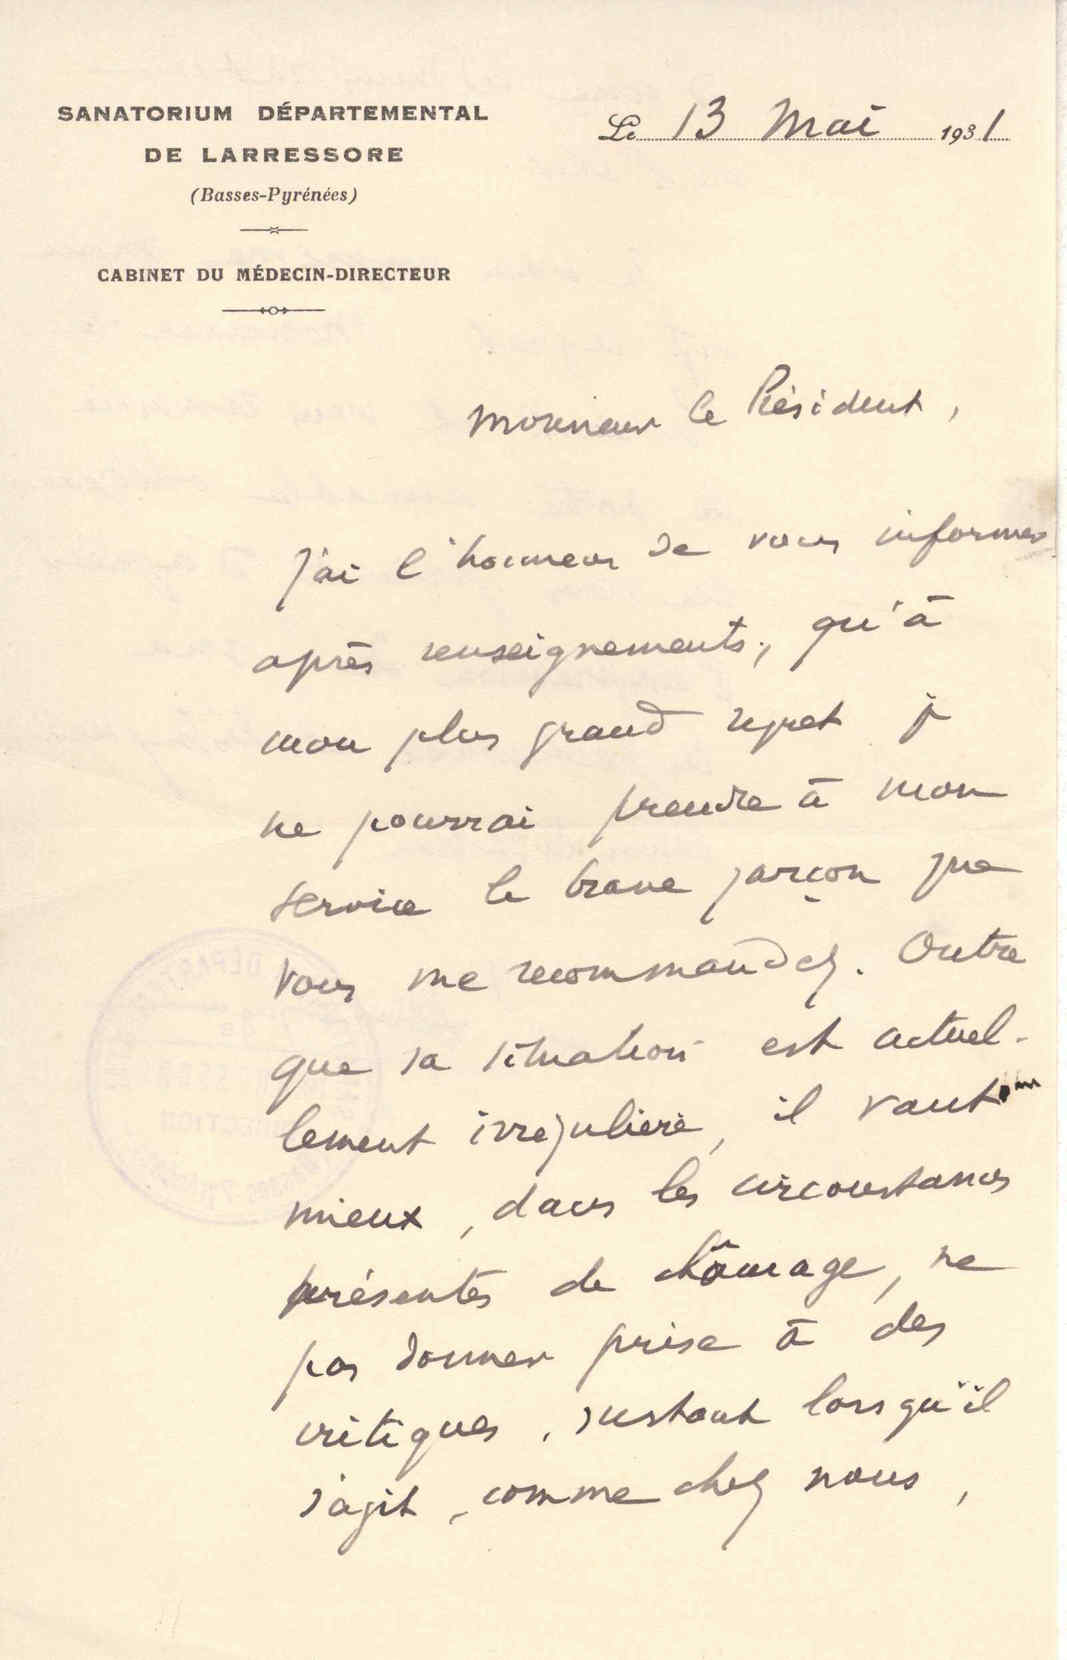 SANATORIUM DÉPARTEMENTAL
DE LARRESSORE
(Basses-Pyrénées)
CABINET DU MÉDECIN-DIRECTEUR
Le 13 Mai 1931
Monsieur le Président,
J'ai l'honneur de vous informer
après renseignements, qu'à
mon plus grand regret je
ne pourrai prendre à mon
service le brave garçon que
vous me recommandez. Outre
que sa situation est actuel-
lement irrégulière, il vaut
mieux, dans les circonstances
présentes de chômage, ne
pas donner prise à des
critiques, surtout lorsqu'il
s'agit, comme chez nous,